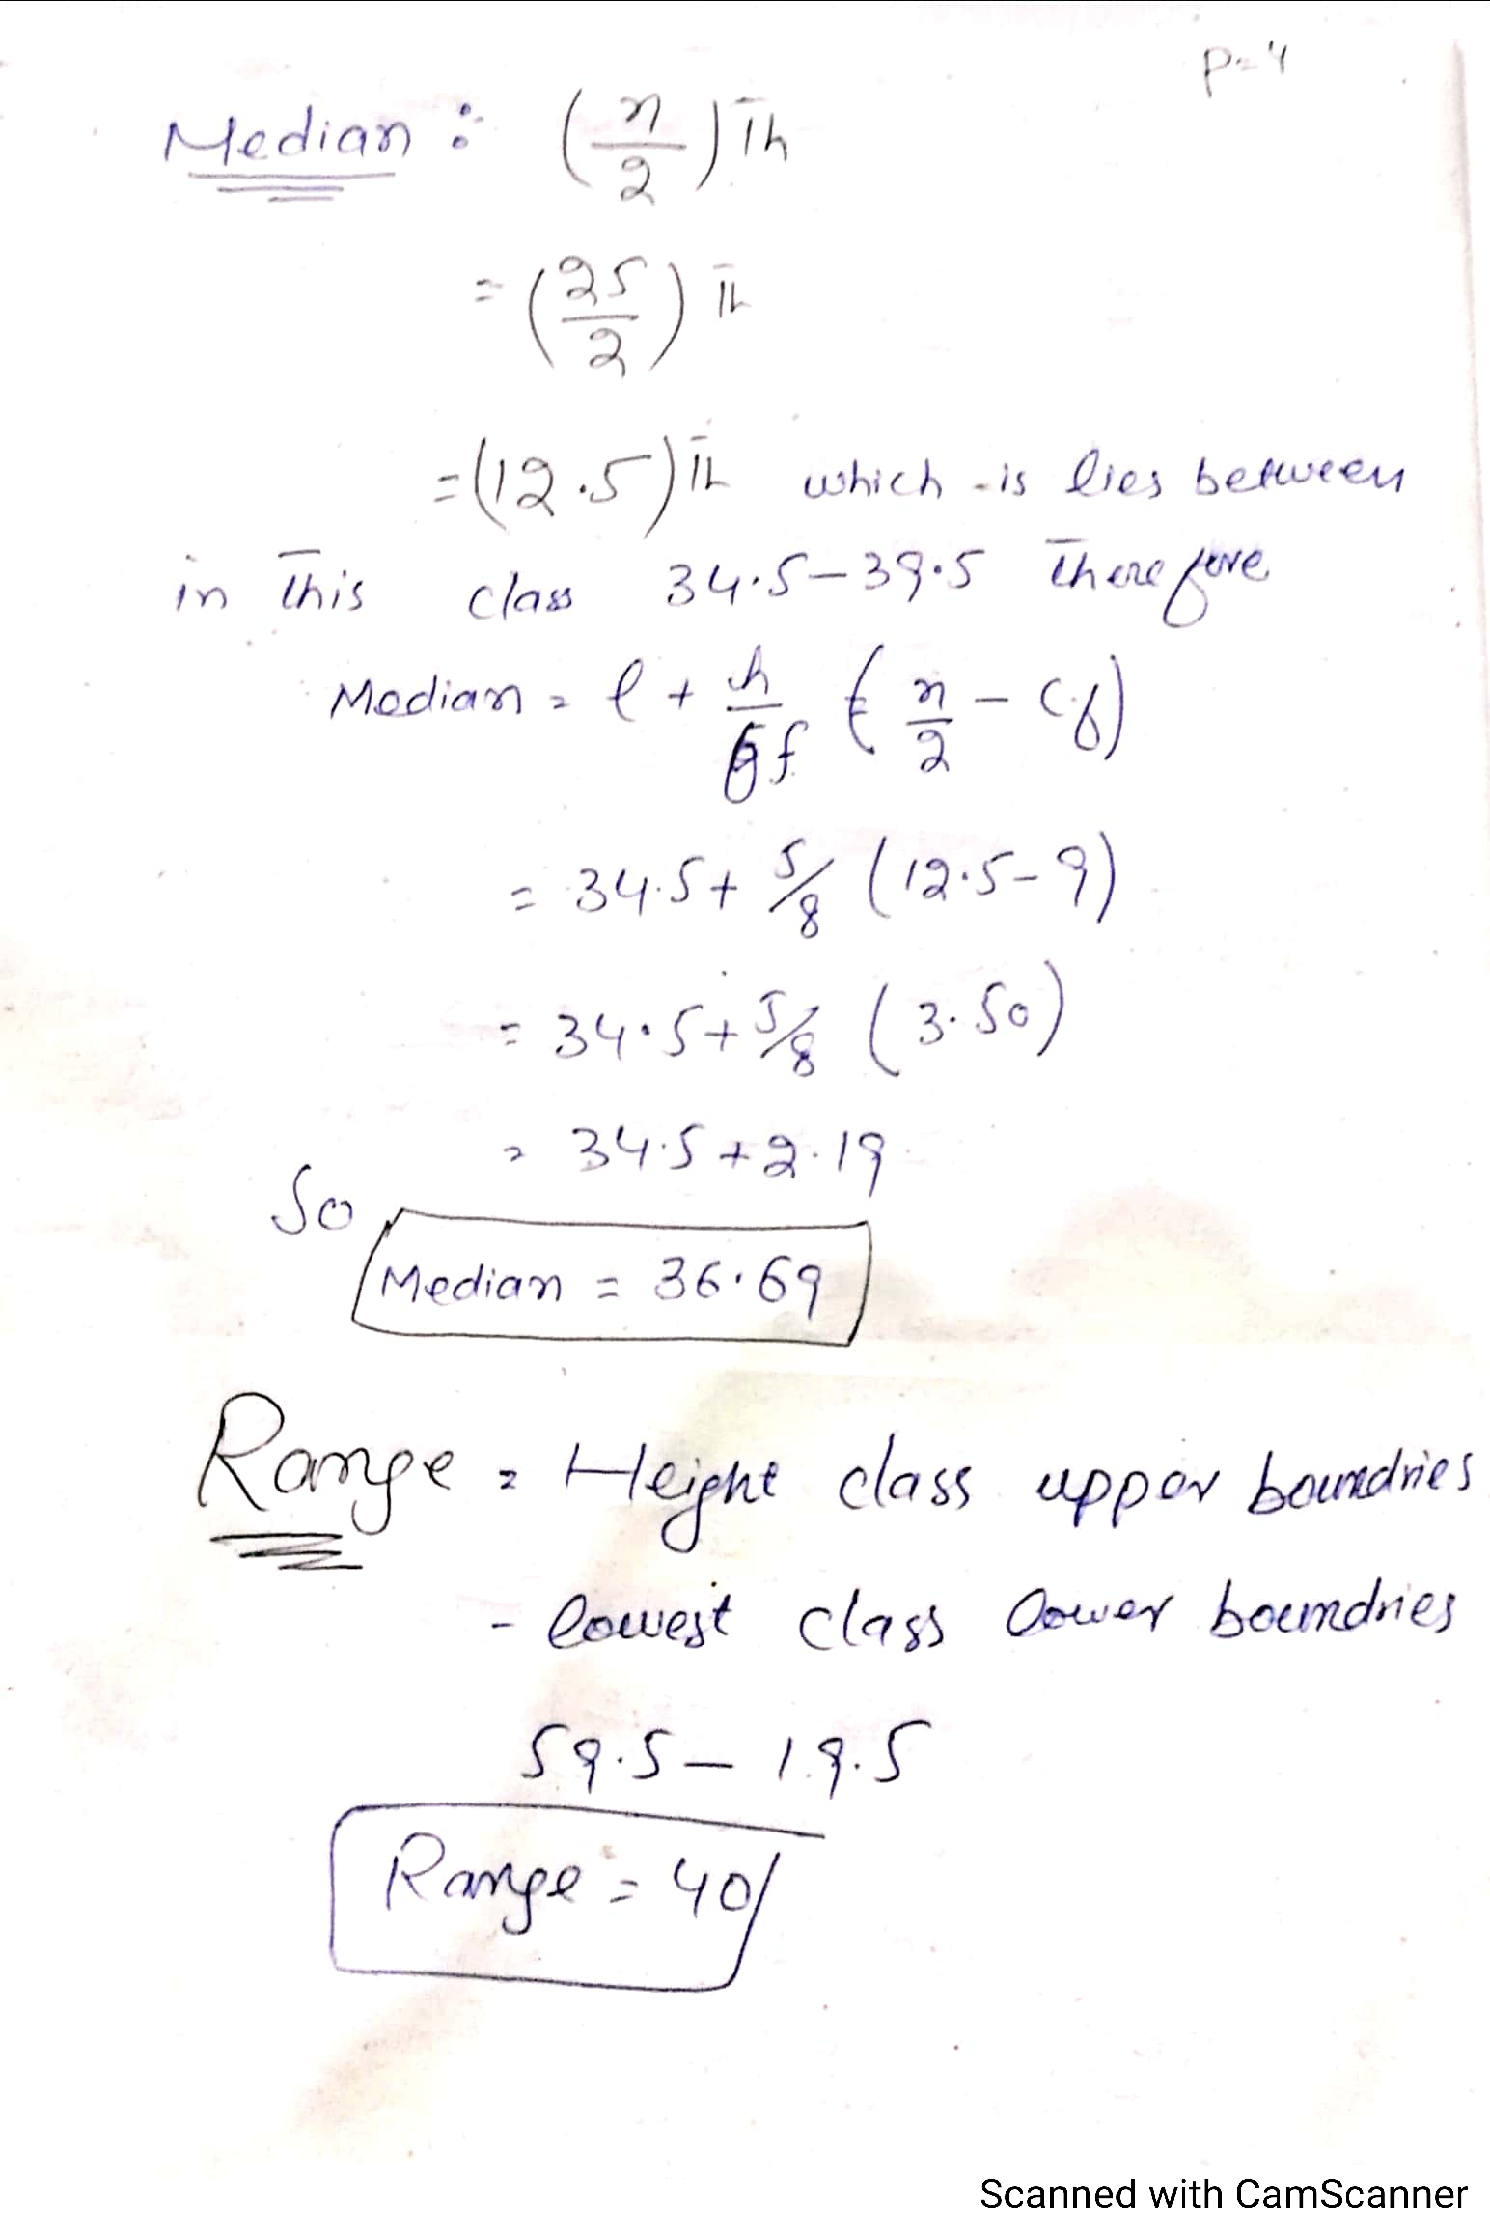 P=4
Median : (n/2)th
= (25/2)th
= (12.5)th which is lies between
in this class 34.5 – 39.5 therefore
Median = l + h/f (n/2 – Cf)
= 34.5 + 5/8 (12.5 – 9)
= 34.5 + 5/8 (3.50)
= 34.5 + 2.19
So
Median = 36.69
Range = Height class upper boundries
- lowest class lower boundries
59.5 – 19.5
Range = 40
Scanned with CamScanner